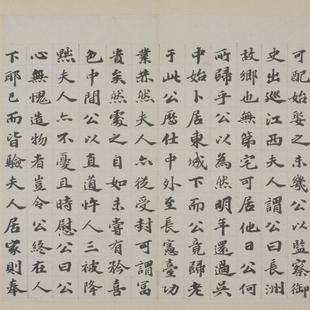 可配始娶之未幾公以監察御
史出巡江西夫人謂公曰長洲
故鄉也無第宅可居他日公何
所歸乎公以為然明年還過吳
中始卜居東城下而公竟歸老
于此公歷仕中外至長憲臺功
業赫然夫人亦從受封可謂富
貴矣然處之自如未嘗有矜喜
色中間公以直道忤人三被降
黜夫人亦不憂且時慰公曰公
心無愧造物者豈令公終在人
下耶已而皆驗夫人居家則奉